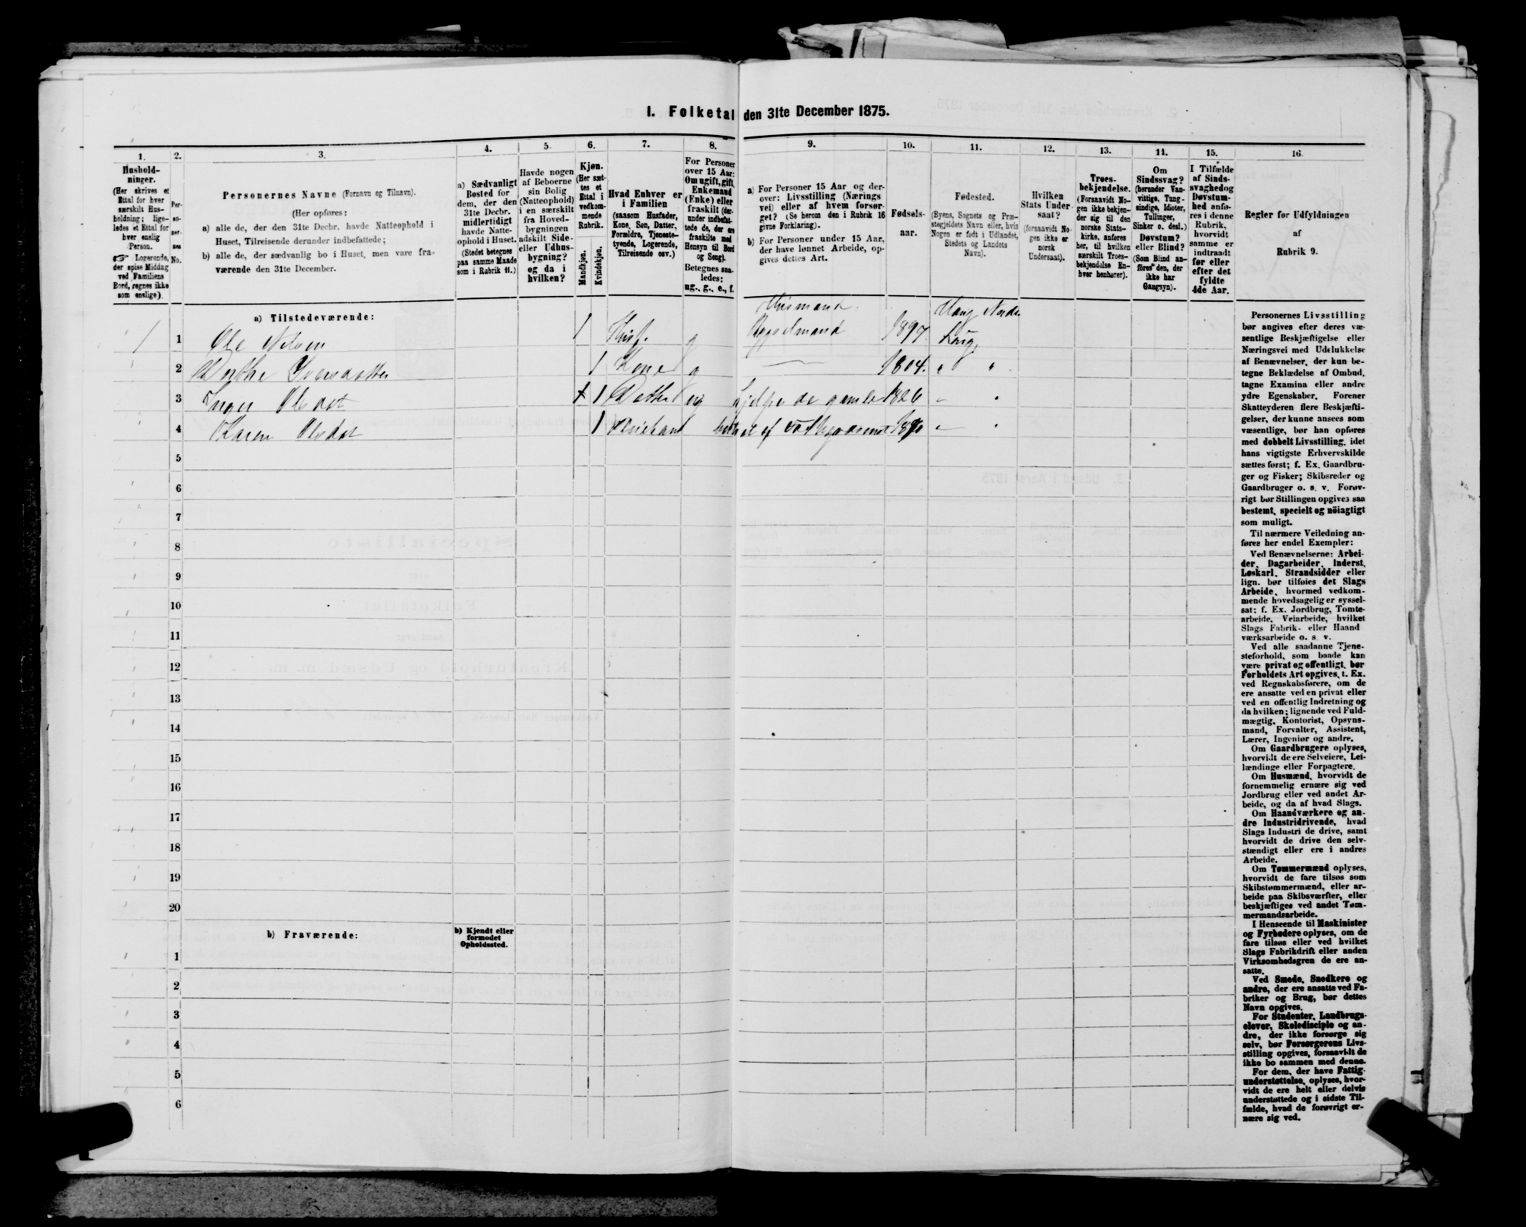 I. Folketal den 31te December 1875.
1.
Hushold-
ninger.
(Her skrives et
Ettal for hver
særskilt Hus-
holdning; lige-
ledes et Ettal for
hver enslig
Person.
Logerende,
der spise Middag
ved Familiens
Bord, regnes ikke
som enslige).
2.
Per-
so-
ner-
nes
No.
3.
Personernes Navne (Fornavn og Tilnavn).
(Her opføres:
a) alle de, der den 31te Decbr. havde Natteophold i
Huset, Tilreisende derunder indbefattede;
b) alle de, der sædvanlig bo i Huset, men vare fra-
værende den 31te December.
4.
a) Sædvanligt
Bosted for
dem, der den
31te Decbr.
midlertidigt
havde Natte-
ophold i Huset.
(Stedet betegnes
paa samme Maade
som i Rubrik 11.)
5.
Havde nogen
af Beboerne
sin Bolig
(Natteophold)
i en særskilt
fra Hoved-
bygningen
adskilt Side-
eller Udhus-
bygning?
og da i
hvilken?
6.
Kjøn.
(Her sæt-
tes et
Ettal i
vedkom-
mende
Rubrik.
Mandkjøn.
Kvindekjøn.
7.
Hvad Enhver er
i Familien
(saasom Husfader,
Kone, Søn, Datter,
Forældre, Tjeneste-
tyende, Logerende,
Tilreisende osv.)
8.
For Personer
over 15 Aar:
Om ugift, gift,
Enkemand
(Enke) eller
fraskilt (der-
under indbefat-
tede de, der ere
fraskilte med
Hensyn til Bord
og Seng).
Betegnes saa-
ledes:
ug., g., e., f.
9.
a) For Personer 15 Aar og der-
over: Livsstilling (Nærings
vei) eller af hvem forsør-
get? (Se herom den i Rubrik 16
givne Forklaring).
b) For Personer under 15 Aar,
der have lønnet Arbeide, op-
gives dettes Art.
10.
Fødsels-
aar.
11.
Fødested.
(Byens, Sognets og Præ-
stegjeldets Navn eller, hvis
Nogen er født i Udlandet,
Stedets og Landets
Navn).
12.
Hvilken
Stats Under-
saat?
(forsaavidt No-
gen ikke er
norsk
Undersaat).
13.
Troes-
bekjendelse.
(Forsaavidt No-
gen ikke bekjen-
der sig til den
norske Stats-
kirke, anføres
her, til hvilken
særskilt Troes-
bekjendelse En-
hver henhører).
14.
Om
Sindssvag?
(herunder Van-
vittige, Tung-
sindige, Idioter,
Tullinger,
Sinker o. desl.)
Døvstum?
eller Blind?
(Som Blind an-
føres den, der
ikke har
Gangsyn).
15.
I Tilfælde
af Sinds-
svaghedog
Døvstum-
hed anfø-
res i denne
Rubrik,
hvorvidt
samme er
indtraadt
før eller
efter det
fyldte
4de Aar.
16.
Regler før Udfyldningen
af
Rubrik 9.
a) Tilstedeværende:
Husmand
Haug Nordre
1 1 Ole Nilsen 1 Husf. g 1897 Haug
2 Iversdatter 1 Kone g 1804 " "
3 Inger Olsdat 1 ug hjelpe de gamle 1826 " "
4 Karen Olsdat 1 " "
5
6
7
8
9
10
11
12
13
14
15
16
17
18
19
20
b) Fraværende:
b) Kjendt eller
formodet
Opholdssted.
1
2
3
4
5
6
Personernes Livsstilling
bør angives efter deres væ-
sentlige Beskjæftigelse eller
Næringsvei med Udelukkelse
af Benævnelser, der kun be-
tegne Beklædelse af Ombud,
tagne Examina eller andre
ydre Egenskaber. Forener
Skatteyderen flere Beskjæfti-
gelser, der kunne ansees som
væsentlige, bør han opføres
med dobbelt Livsstilling, idet
hans vigtigste Erhvervskilde
sættes først; f. Ex. Gaardbru-
ger og Fisker; Skibsreder og
Gaardbruger o. s. v. Forøv-
rigt bør Stillingen opgives saa
bestemt, specielt og nøiagtigt
som muligt.
Til nærmere Veiledning an-
føres her endel Exempler:
Ved Benævnelserne: Arbei-
der, Dagarbeider, Inderst,
Løskarl, Strandsidder eller
lign. bør tilføies det Slags
Arbeide, hvormed vedkom-
mende hovedsagelig er syssel-
sat; f. Ex. Jordbrug, Tomte-
arbeide, Veiarbeide, hvilket
Slags Fabrik- eller Haand
værksarbeide o. s. v.
Ved alle saadanne Tjene-
steforhold, som baade kan
være privat og offentligt, bør
Forholdets Art opgives, t. Ex.
ved Regnskabsførere, om de
ere ansatte ved en privat eller
ved en offentlig Indretning og
da hvilken; lignende ved Fuld-
mægtig, Kontorist, Opsyns-
mand, Forvalter, Assistent,
Lærer, Ingeniør og andre.
Om Gaardbrugere oplyses,
hvorvidt de ere Selveiere, Lei-
lændinge eller Forpagtere.
Om Husmænd, hvorvidt de
fornemmelig ernære sig ved
Jordbrug eller ved andet Ar-
beide, og da af hvad Slags.
Om Haandværkere og an-
dre Industridrivende, hvad
Slags Industri de drive, samt
hvorvidt de drive den selv-
stændigt eller ere i andres
Arbeide.
Om Tømmermænd oplyses,
hvorvidt de fare tilsøs som
Skibstømmermænd, eller ar-
beide paa Skibsværfter, eller
beskjæftiges ved andet Tøm-
mermandsarbeide.
I Henseende til Maskinister
og Fyrbødere oplyses, om de
fare tilsøs eller ved hvilket
Slags Fabrikdrift eller anden
Virksomhedsgren de ere an-
satte.
Ved Smede, Snedkere og
andre, der ere ansatte ved Fa-
briker og Brug, bør dettes
Navn opgives.
For Studenter, Landbrugs-
elever, Skoledisciple og an-
dre, der ikke forsørge sig
selv, bør Forsørgerens Livs-
stilling opgives, forsaavidt de
ikke bo sammen med denne.
For dem, der have Fattig-
understøttelse, oplyses, hvor-
vidt de ere helt eller delvis
understøttede og i sidste Til-
fælde, hvad de forøvrigt er-
nære sig ved.